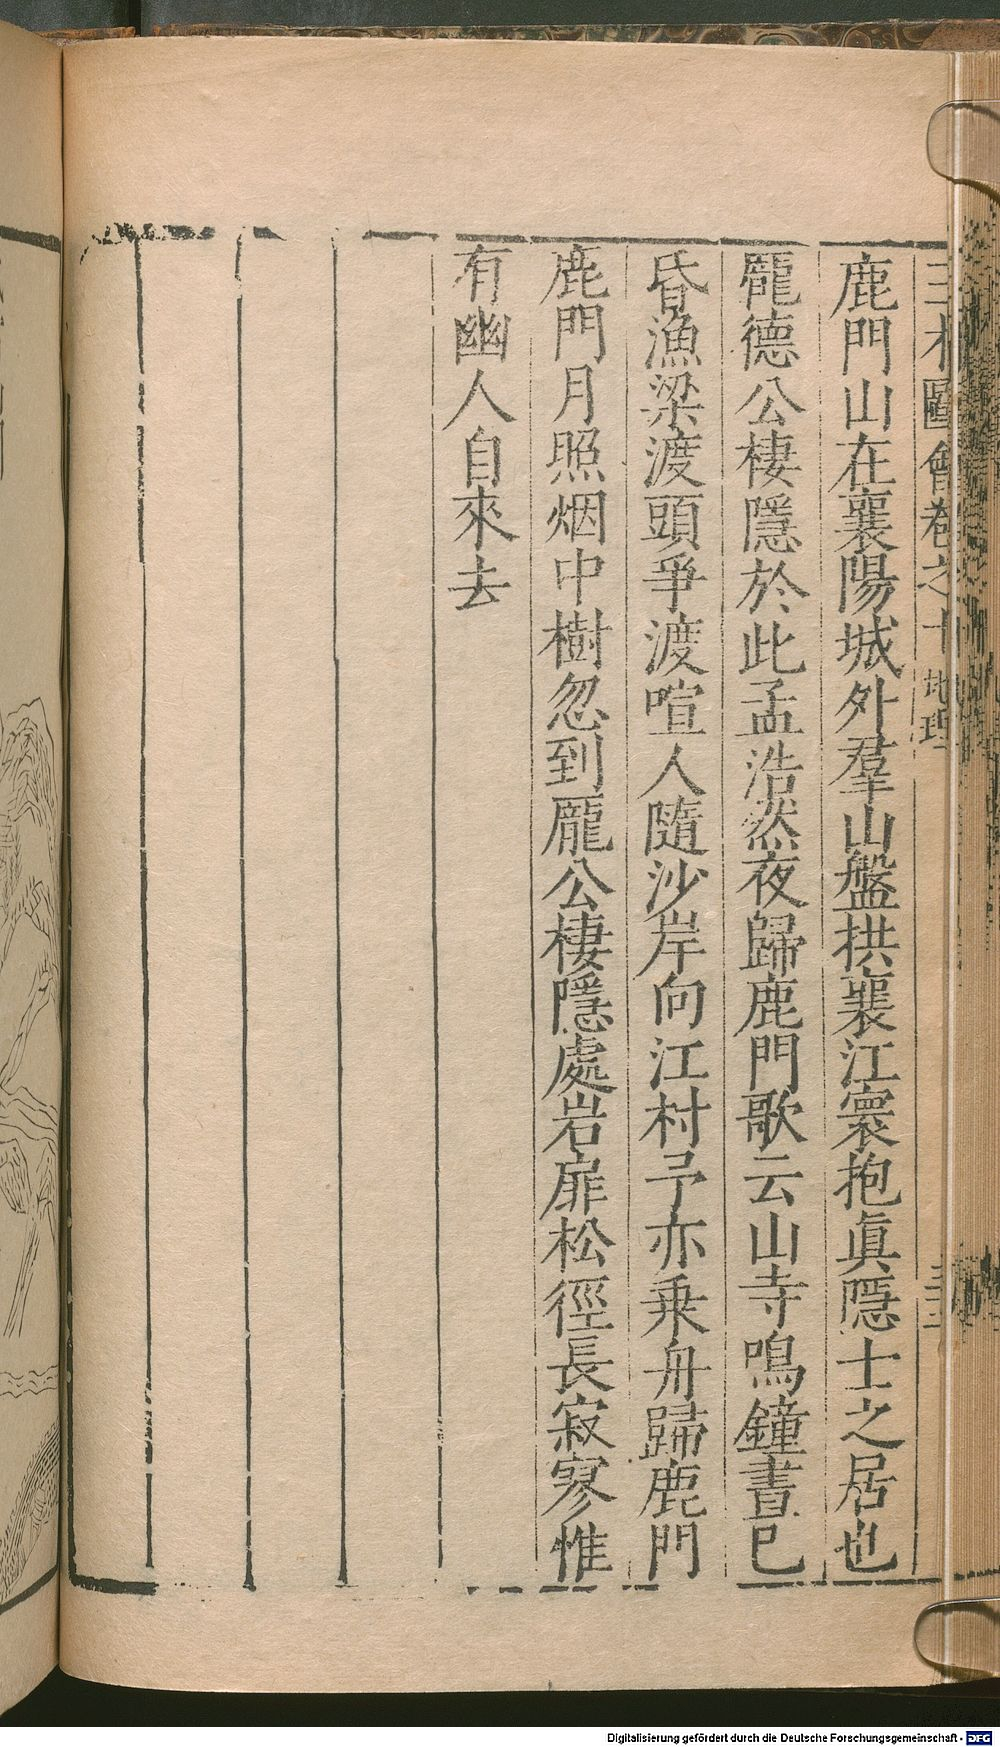 三才圖會卷之十地理
鹿門山在襄陽城外羣山盤拱襄江寰抱眞隱士之居也
龐德公棲隱於此孟浩然夜歸鹿門歌云山寺鳴鐘晝已
昏漁梁渡頭爭渡喧人隨沙岸向江村予亦乗舟歸鹿門
鹿門月照烟中樹忽到龐公棲隱處岩扉松徑長寂寥惟
有幽人自來去
Digitalisierung gefördert durch die Deutsche Forschungsgemeinschaft - DFG